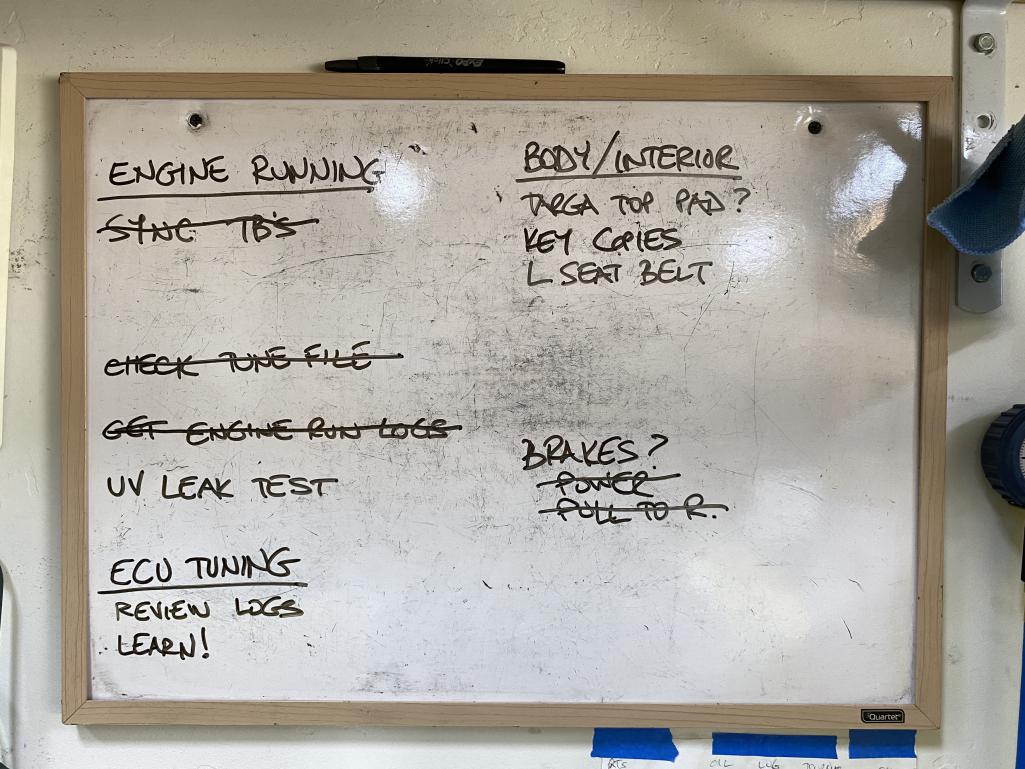 EXPO CLICK
ENGINE RUNNING
SYNC TB'S
CHECK TUNE FILE
GET ENGINE RUN LOGS
UV LEAK TEST
ECU TUNING
REVIEW LOGS
LEARN!
BODY/INTERIOR
TARGA TOP PAD?
KEY COPIES
L SEAT BELT
BRAKES?
POWER
PULL TO R.
Quartet
OIL LUG